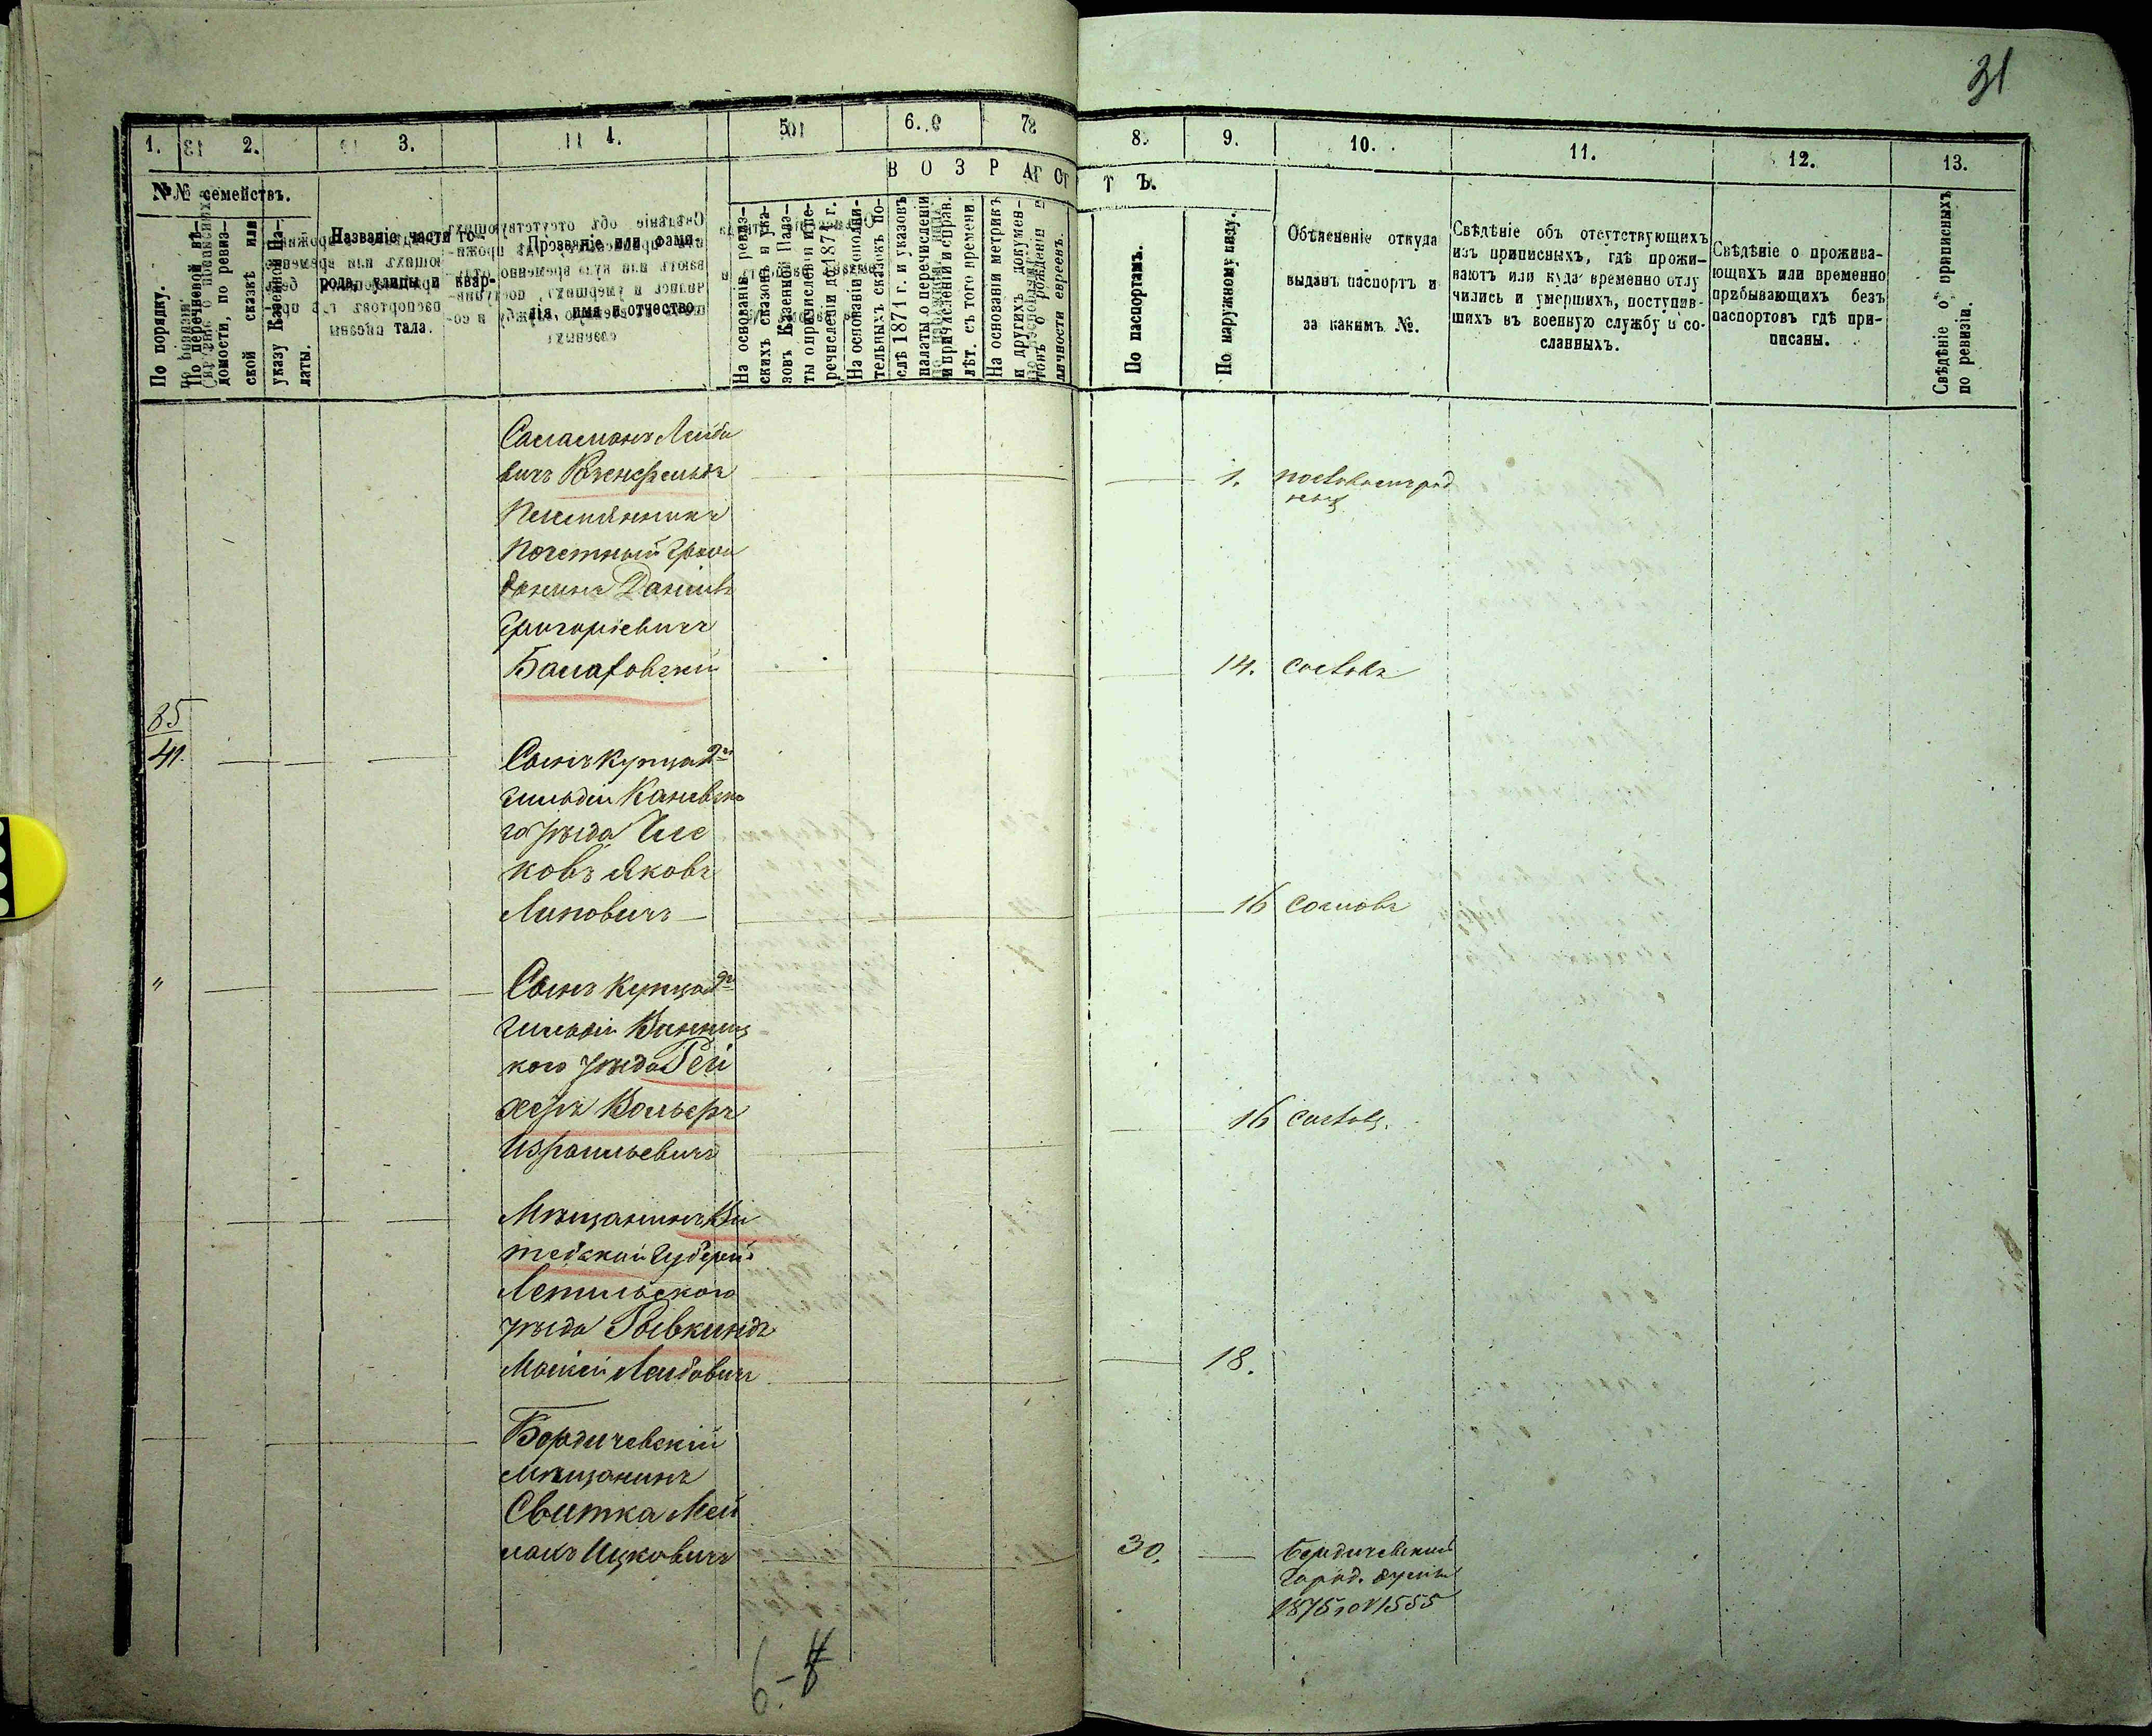 31
1. 2. 3. 4. 5. 6. 7. 8. 9. 10. 11. 12. 13.
№№ семействъ.
В О З Р А С Т Ъ.
По порядку.
По перечневой вѣ-
домости, по ревиз-
ской сказкѣ или
указу Казенной Па-
латы.
Названіе части го-
рода, улицы и квар-
тала.
Прозваніе или фами-
лія, имя и отчество.
На основаніи ревиз-
скихъ сказокъ и ука-
зовъ Казенной Пала-
ты о причисленіи и пе-
речисленіи до 187 г.
На основаніи дополни-
тельныхъ сказокъ по-
слѣ 1871 г. и указовъ
палаты о перечисленіи
и причисленіи и справ.
лѣт. съ того времени
На основаніи метрикъ
и другихъ докумен-
товъ о рожденіи
личности евреевъ.
По паспортамъ.
По наружному виду.
Объясненіе откуда
выданъ паспортъ и
за какимъ №.
Свѣдѣніе объ отсутствующихъ
изъ приписныхъ, гдѣ прожи-
ваютъ или куда временно отлу
чились и умершихъ, поступив-
шихъ въ военную службу и со-
сланныхъ.
Свѣдѣніе о прожива-
ющихъ или временно
прибывающихъ безъ
паспортовъ гдѣ при-
писаны.
Свѣдѣніе о приписныхъ
по ревизіи.
Саламонъ Лейбо
вичъ Розенфельдъ 1.
Племянникъ
Почетный Граж
данинъ Данiилъ
Григорiевичъ
Балаховскій 14.
85
41. Сынъ купца 2й
гильдіи Каневска
го уѣзда Чис
ковъ Яковъ
Липовичъ 16
" Сынъ купца 2й
гильдіи Винниц
кого уѣзда Рей
херъ Вольфъ 16
Израильевичъ
Мѣщанинъ Ви
тебской Губерніи
Лепильского
уѣзда Рывкиндъ
Мошкей Лейбовичъ 18.
Бердичевскій
мѣщанинъ
Свитка Мей
лахъ Ицковичъ 30. Бердичевской
Город. думы
1875 г № 1555
6.-